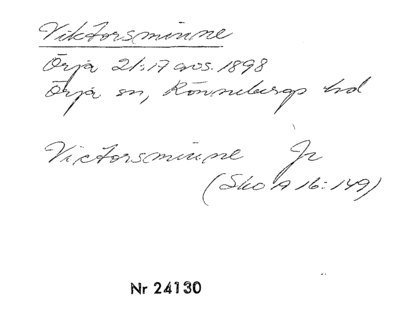 Viktorsminne
Örja 21:17 avs. 1898
Örja sn, Rönnebergs hd
Victorsminne Jr
(Sko A 16:149)
Nr 24130